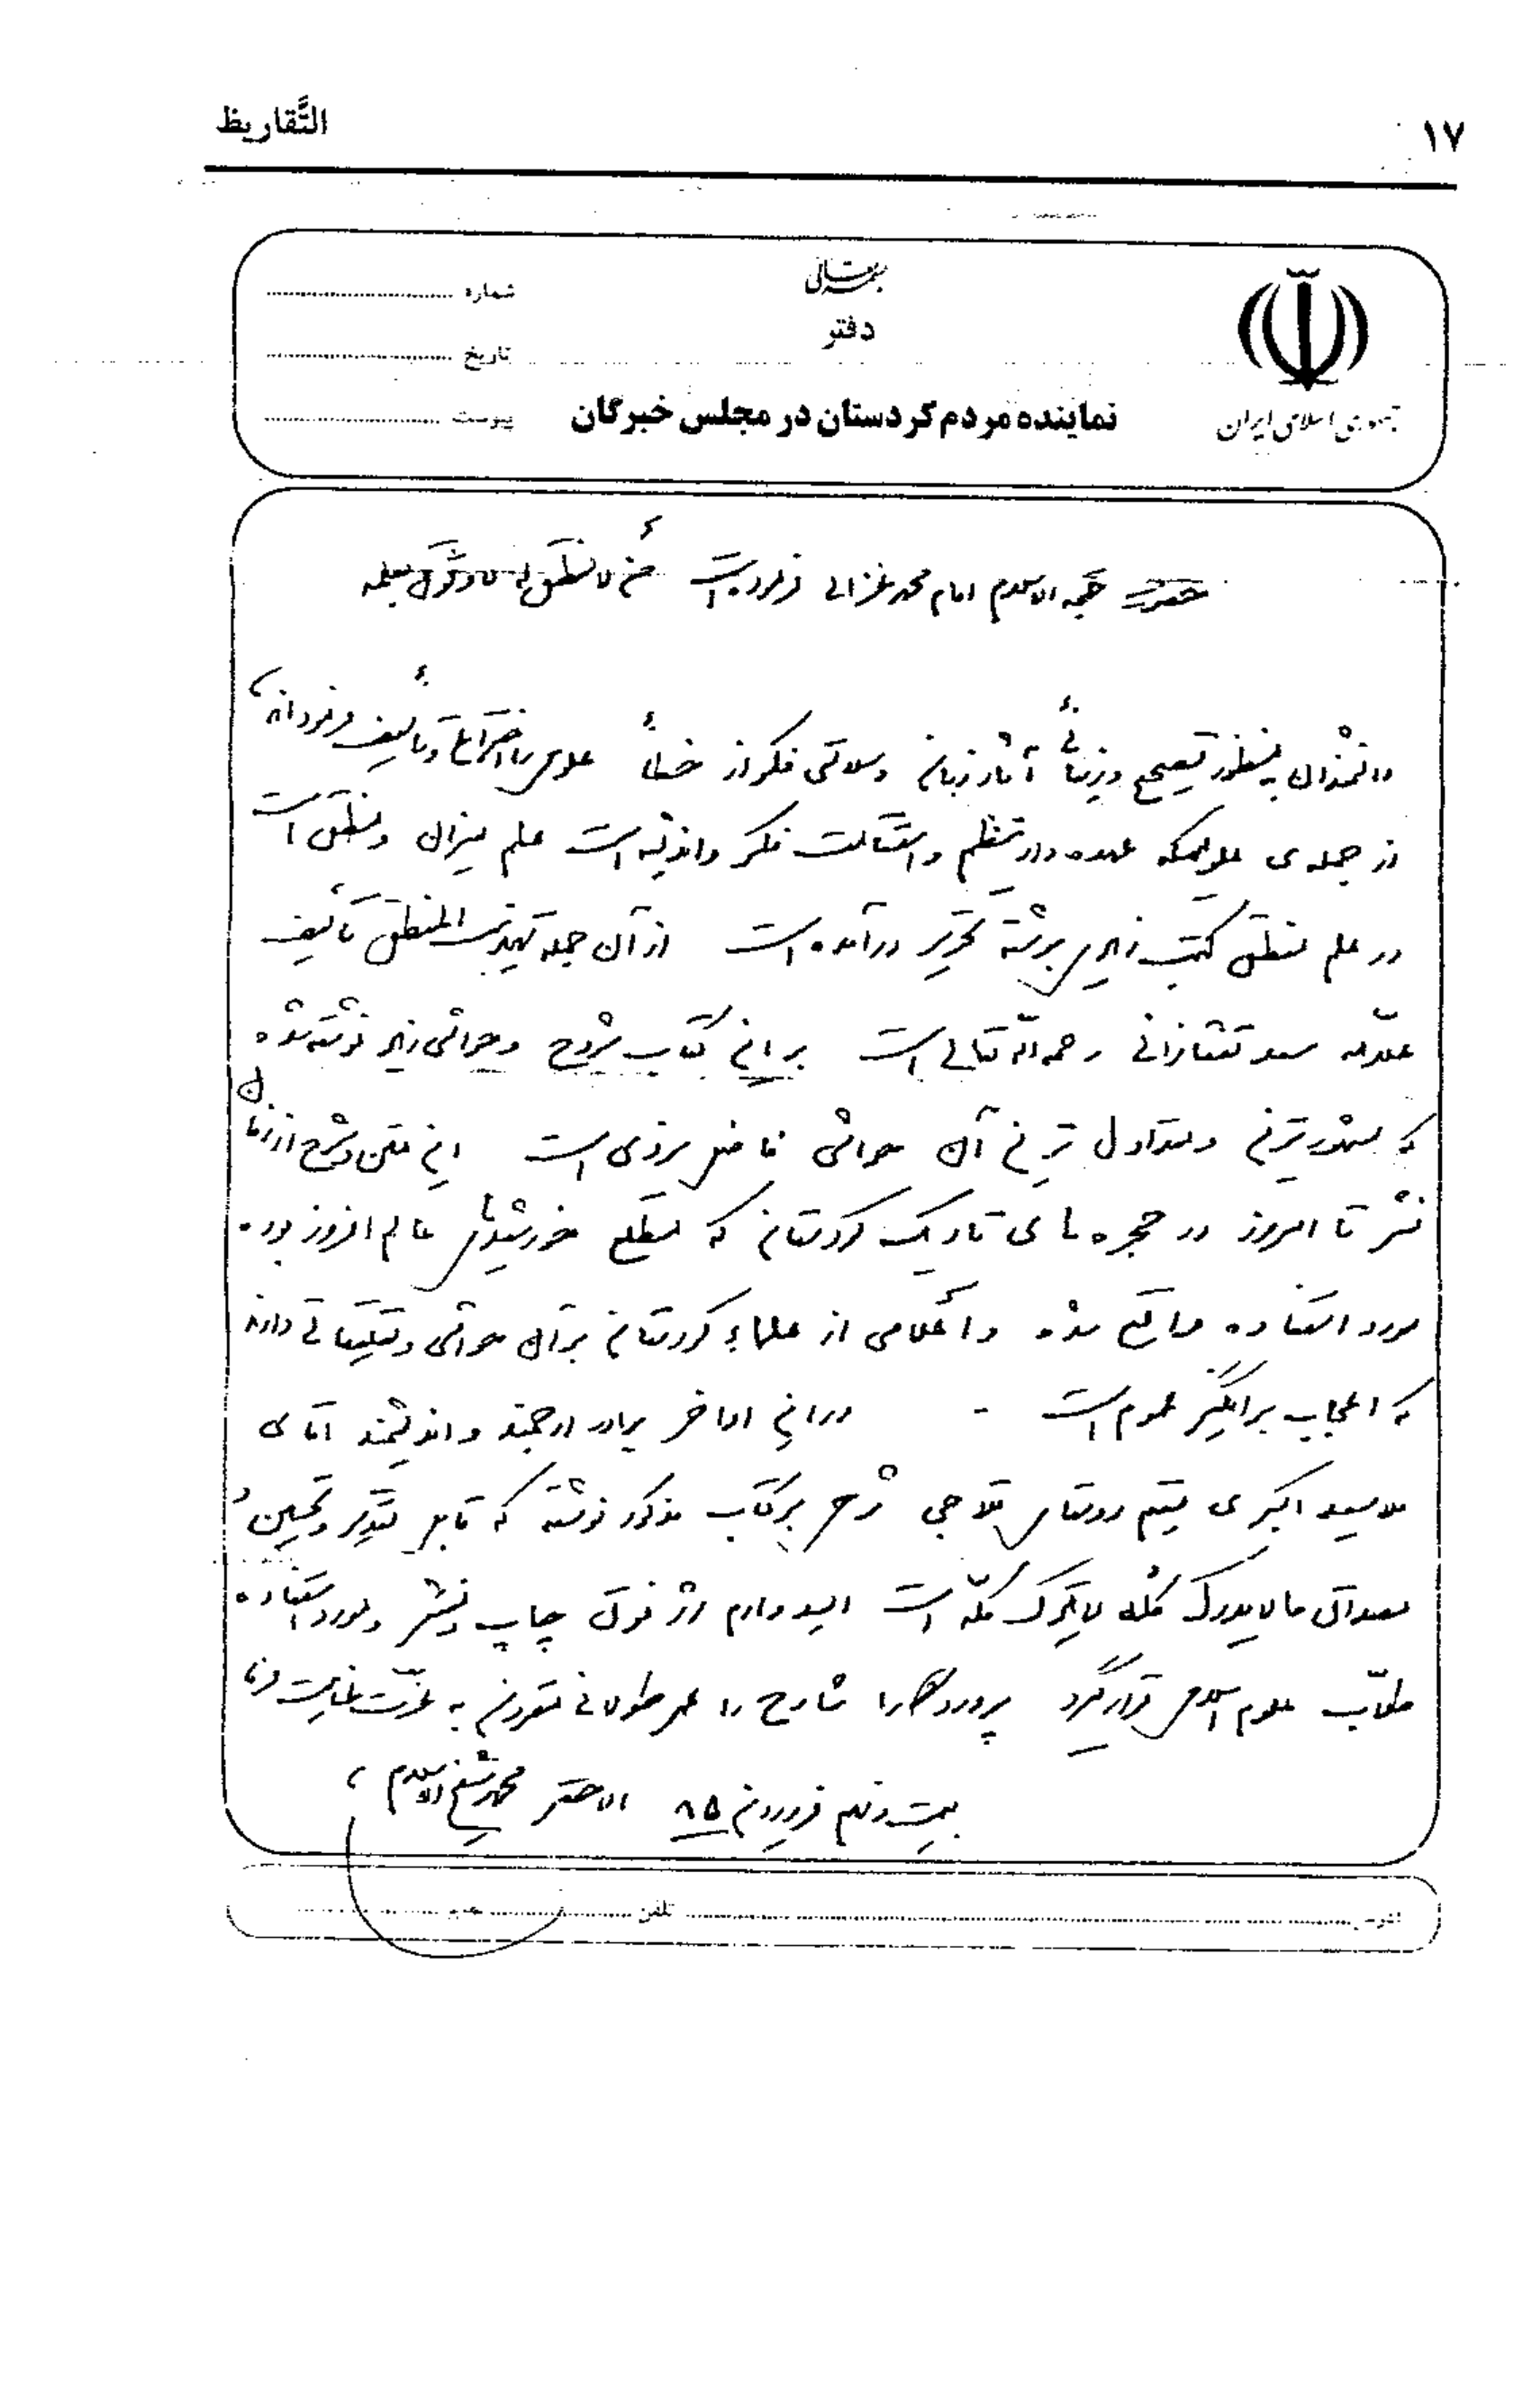 التَّقاريظ
١٧
بسمه تعالی
دفتر
نماینده مردم کردستان در مجلس خبرگان
جمهوری اسلامی ایران
شماره
تاریخ
پیوست
حضرت حجه الاسلام امام محمد غزالی فرموده است من لا منطق له لا وثوق بعلمه
دانشمندان به منظور تصحیح و زیبائی آثار زبان و سلامتی فکر از خطأ علومی را اختراع و تألیف فرموده‌اند،
از جمله‌ی علومیکه عهده‌دار تنظیم و استقامت فکر و اندیشه است علم میزان و منطق است
در علم منطق کتب زیادی برشته تحریر درآمده است از آن جمله تهذیب المنطق تألیف
علّامه سعد تفتازانی رحمه الله تعالی است بر این کتاب شروح و حواشی زیاد نوشته شده
که مشهورترین و متداول ترین آن حواشی فاضل یزدی است این متن و شرح از زمان
نشر تا امروز در حجره‌های تاریک کردستان که مطلع خورشیدهای عالم افروز بوده
مورد استفاده واقع شده و أعلامی از علماء کردستان بر آن حواشی و تعلیقاتی دارند
که اعجاب برانگیز عموم است - در این اواخر برادر ارجمند و اندیشمند آقای
ملا سعید اکبری مقیم روستای قلاجی شرحی بر کتاب مذکور نوشته که قابل تقدیر و تحسین و
مصداق ما لا یدرک کُله لا یُترک کلّه است امیدوارم اثر فوق چاپ و نشر و مورد استفاده
طلّاب علوم اسلامی قرار گیرد پروردگارا شارح را عمر طولانی مقرون به عزّت عنایت فرما
بیست و نهم فروردین ۸۵ الاحقر محمد شیخ الاسلام
آدرس
تلفن